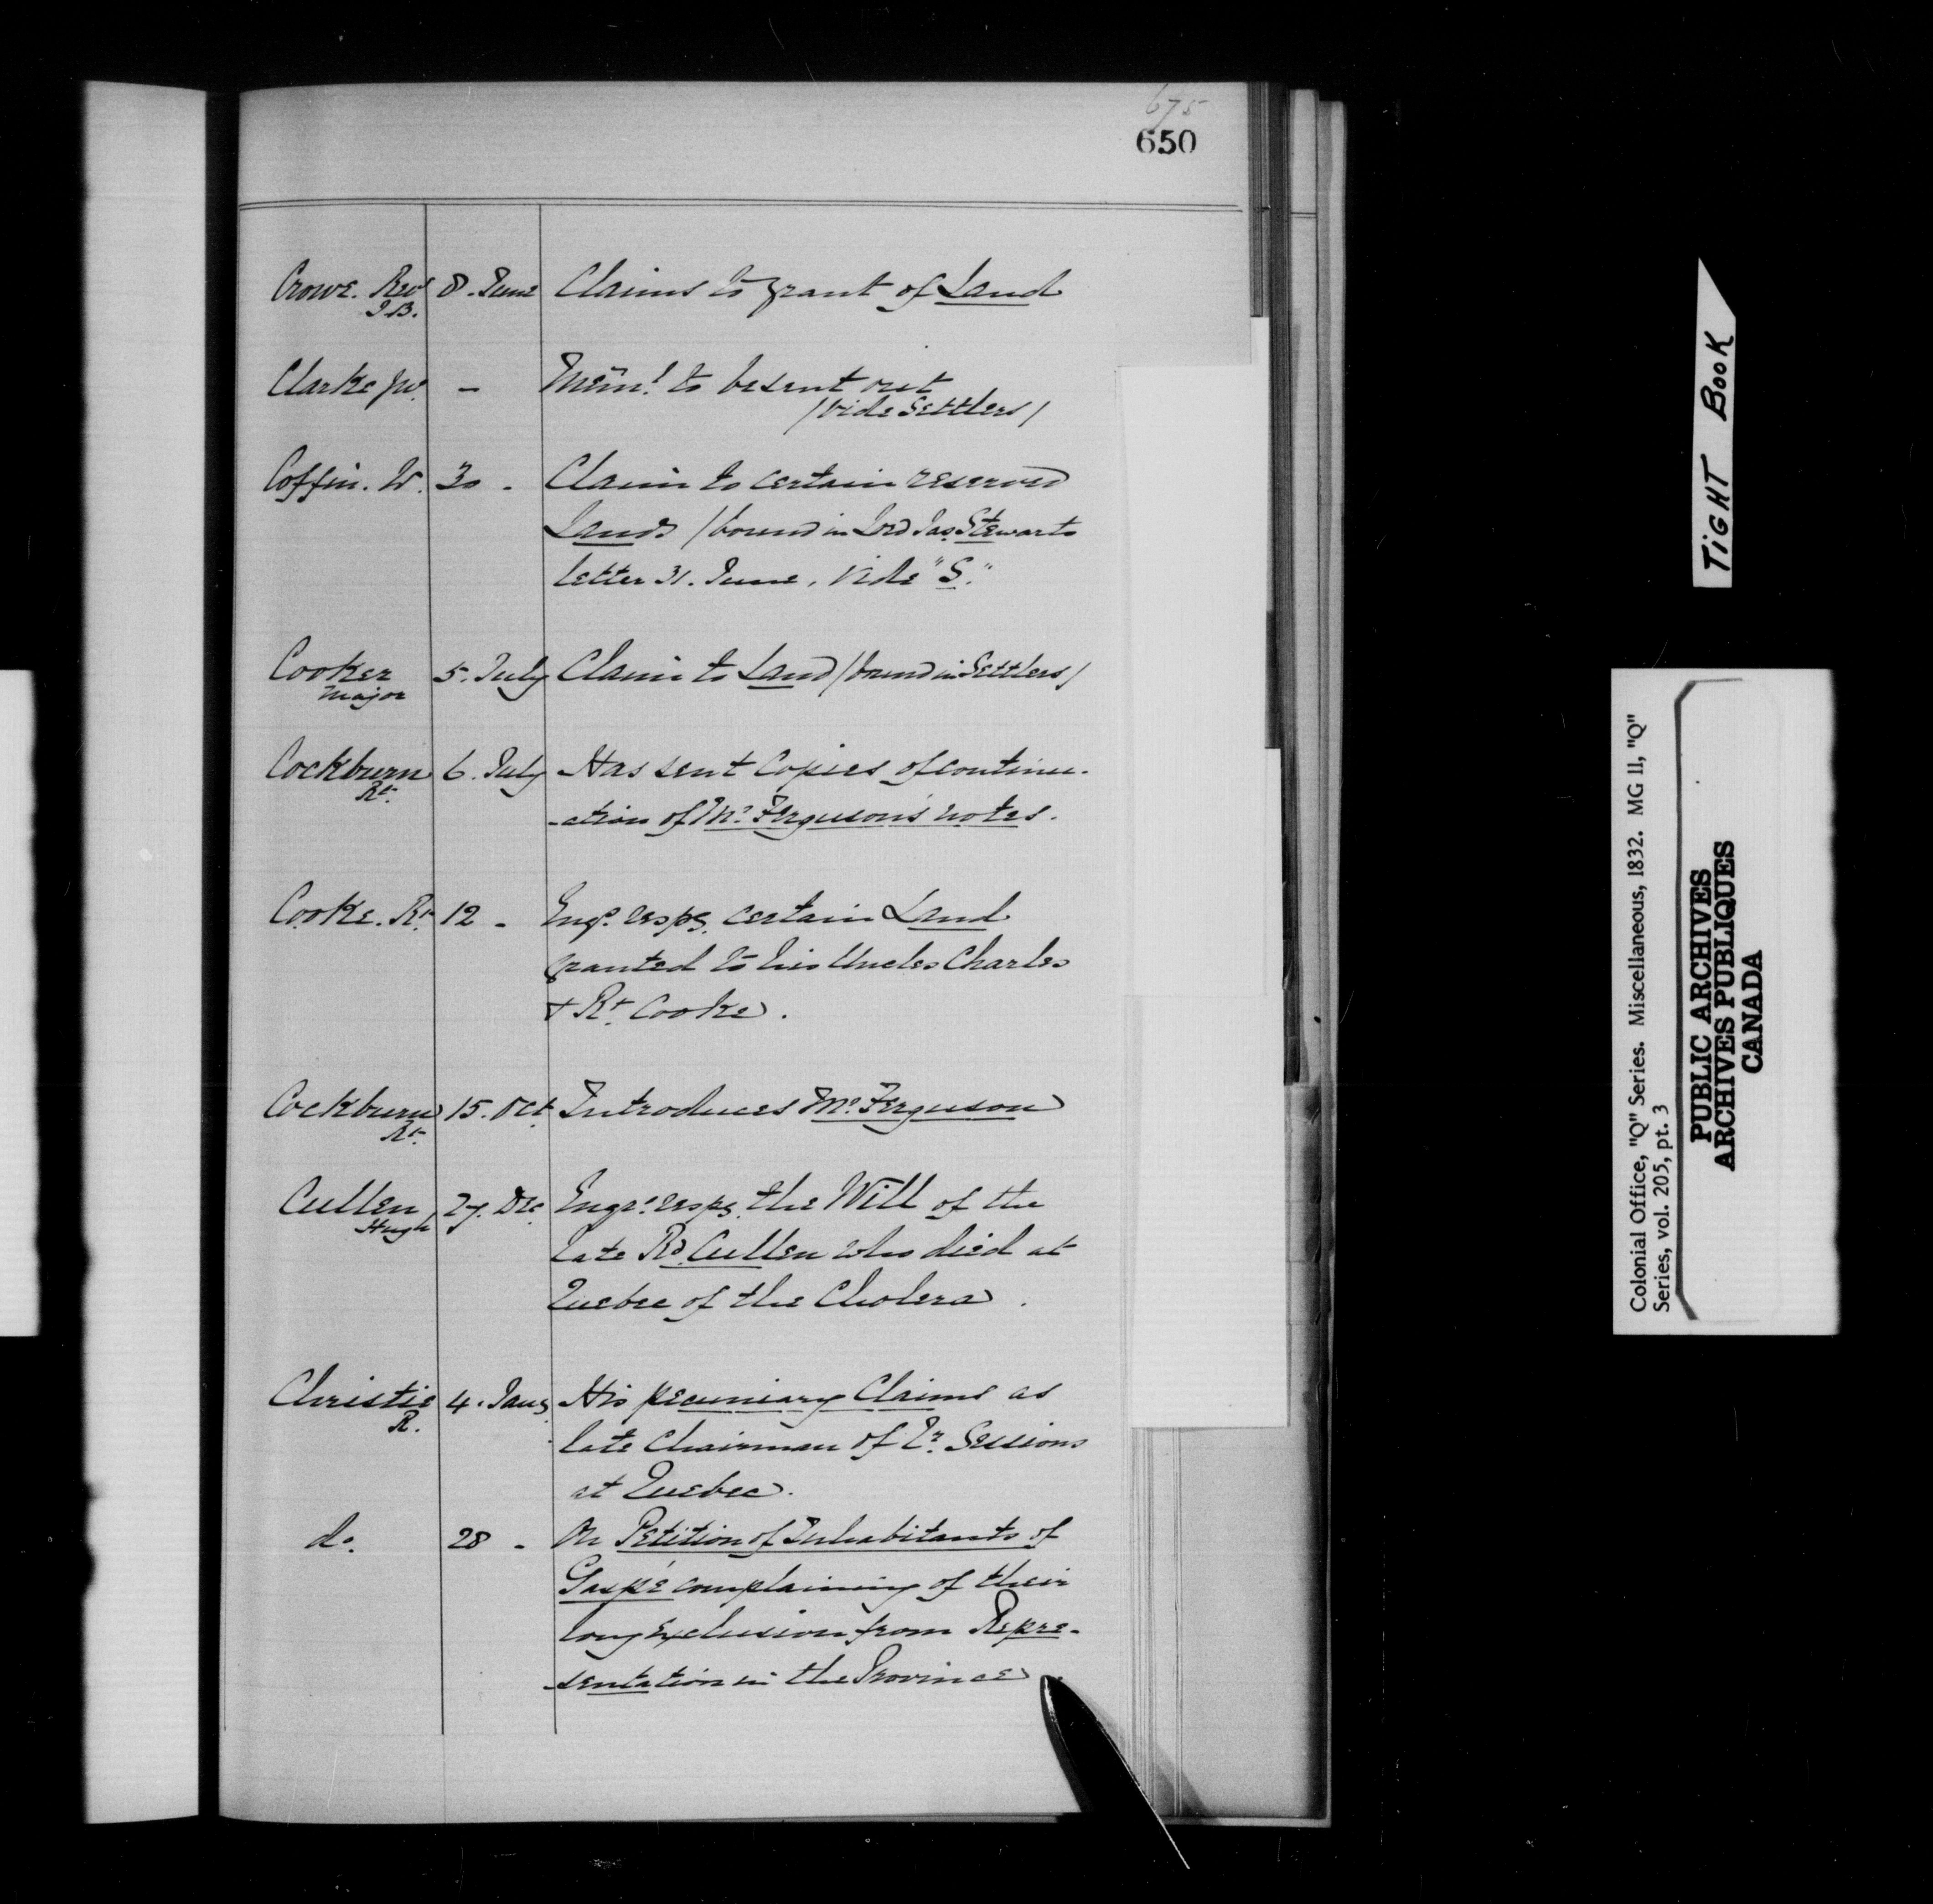 675
650
Crowe. Revd 8. June Claims to grant of Land
J B.
Clarke Jno. - Meml. to be sent out
/Vide Settlers/
Coffin. W. 30 - Claim to certain reserved
Lands /bound in Lord Jas. Stewarts
letter 31. June, Vide "S."
Cooker 5. July Claim to Land /bound in Settlers/
Major
Cockburn 6. July Has sent Copies of continu-
Rt.
-ation of Mr. Ferguson's notes.
Cooke. Rt. 12 - Engs. respg. certain Land
granted to his Uncles Charles
& Rt. Cooke.
Cockburn 15. Oct. Introduces Mr. Ferguson
Rt.
Cullen 27. Dec. Engs. respg. the Will of the
Hugh
late Rd. Cullen who died at
Quebec of the Cholera.
Christie 4. Jany. His pecuniary Claims as
R.
late Chairman of Qr. Sessions
at Quebec.
do. 28 - On Petition of Inhabitants of
Gaspé complaining of their
long exclusion from Repre-
-sentation in the Province
TIGHT BOOK
Colonial Office, "Q" Series. Miscellaneous, 1832. MG 11, "Q"
Series, vol. 205, pt. 3
PUBLIC ARCHIVES
ARCHIVES PUBLIQUES
CANADA